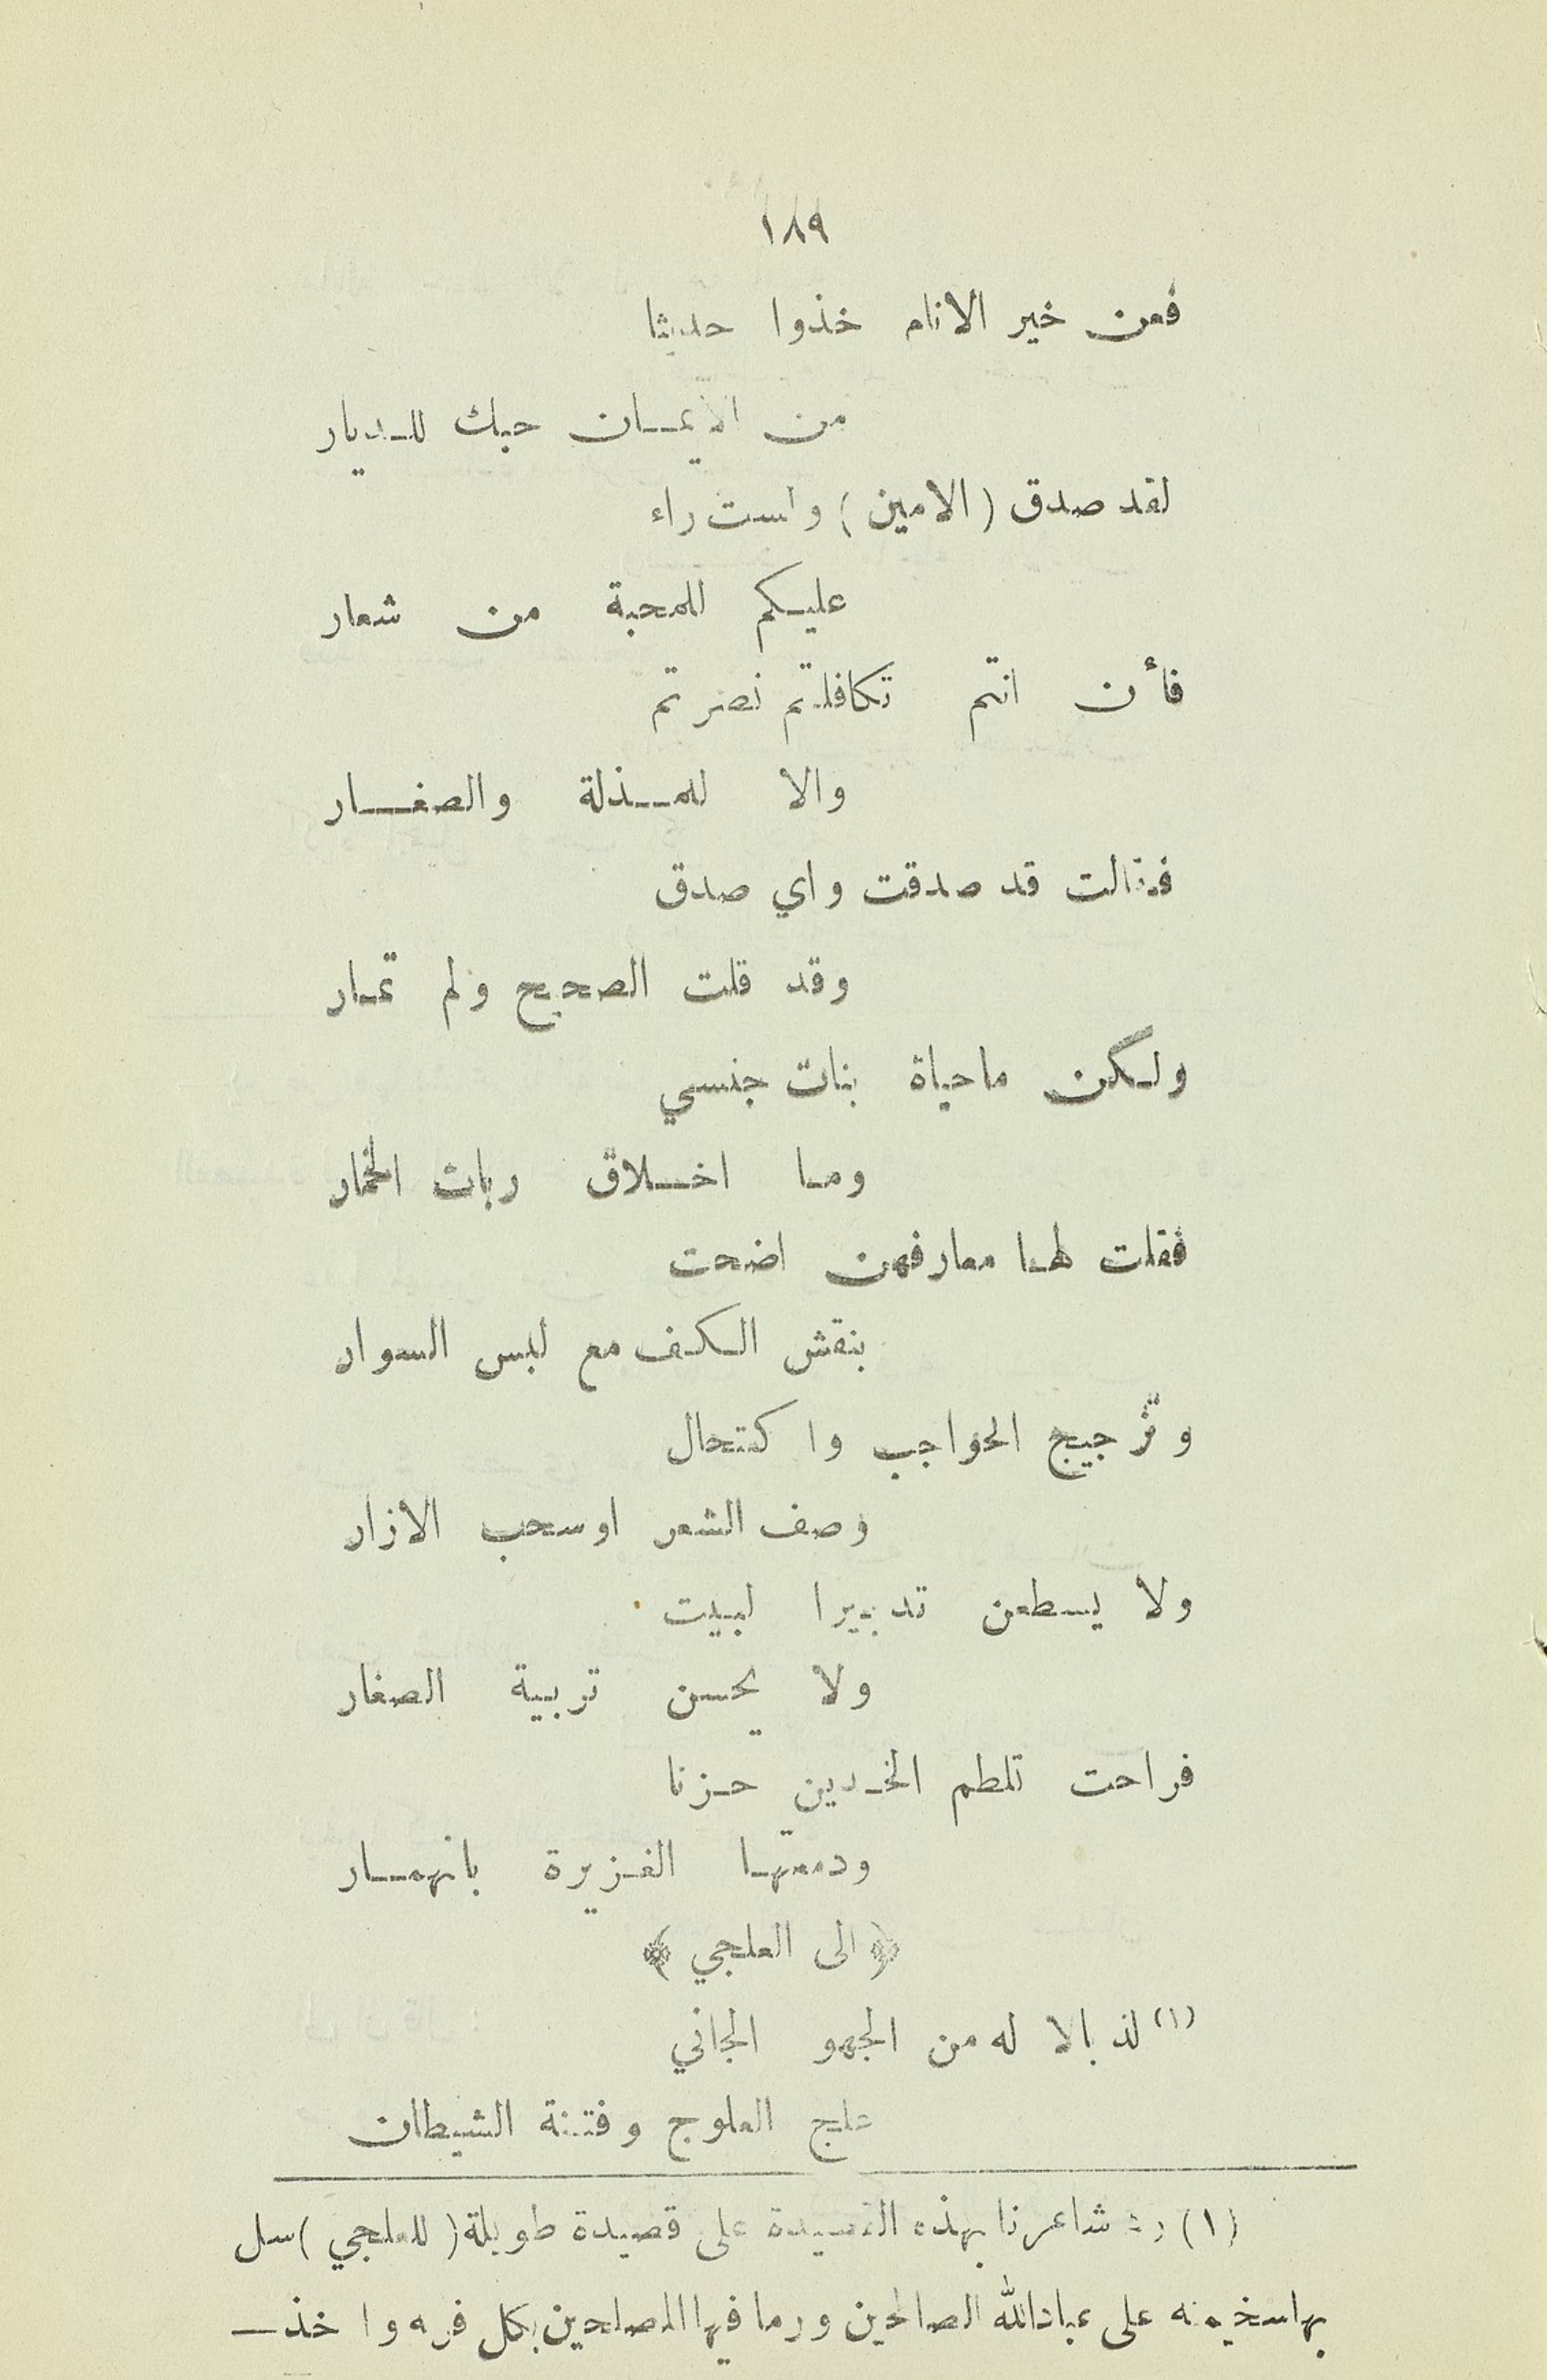 ١٨٩
فعن خير الانام خذوا حديثا
من الايمـان حبك للـديار
لقد صدق (الامين) ولست راء
عليـكم للمحبة من شعار
فأن انتم تكافلتم نصرتم
والا للمـذلة والصغـار
فقالت قد صدقت واي صدق
وقد قلت الصحيح ولم تمـار
ولـكن ماحياة بنات جنسي
ومـا اخـلاق ربات الخمار
فقلت لهـا معارفهن اضحت
بنقش الـكف مع لبس السوار
وتزجيج الحواجب واكتحال
وصف الشعر اوسحب الازار
ولا يسطعن تدبيرا لبيت
ولا يحسن تربية الصغار
فراحت تلطم الخـدين حـزنا
ودمعتهـا الغـزيرة بانهمـار
﴿ الى العلجي ﴾
(١) لذ بالا له من الجهو الجاني
علج العلوج وفتنة الشيطان
(١) رد شاعرنا بهذه القصيدة على قصيدة طويلة (للعلجي) سل
بهاسخيمته على عبادالله الصالحين ورما فيها المصلحين بكل فريه واخذـ